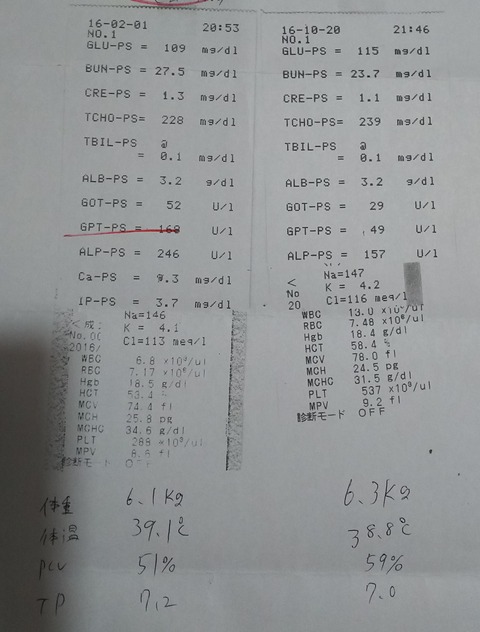 16-02-01 20:53
NO.1
GLU-PS = 109 mg/dl
BUN-PS = 27.5 mg/dl
CRE-PS = 1.3 mg/dl
TCHO-PS= 228 mg/dl
TBIL-PS @
= 0.1 mg/dl
ALB-PS = 3.2 g/dl
GOT-PS = 52 U/l
GPT-PS = 168 U/l
ALP-PS = 246 U/l
Ca-PS = 9.3 mg/dl
IP-PS = 3.7 mg/dl
Na=146
K = 4.1
Cl=113 meq/l
WBC 6.8 x10³/ul
RBC 7.17 x10⁶/ul
Hgb 18.5 g/dl
HCT 53.4 %
MCV 74.4 fl
MCH 25.8 pg
MCHC 34.6 g/dl
PLT 288 x10³/ul
MPV 8.6 fl
診断モード OFF
体重 6.1Kg
体温 39.1℃
PCV 51%
TP 7.2
16-10-20 21:46
NO.1
GLU-PS = 115 mg/dl
BUN-PS = 23.7 mg/dl
CRE-PS = 1.1 mg/dl
TCHO-PS= 239 mg/dl
TBIL-PS @
= 0.1 mg/dl
ALB-PS = 3.2 g/dl
GOT-PS = 29 U/l
GPT-PS = 49 U/l
ALP-PS = 157 U/l
Na=147
< K = 4.2
No Cl=116 meq/l
20
WBC 13.0 x10³/ul
RBC 7.48 x10⁶/ul
Hgb 18.4 g/dl
HCT 58.4 %
MCV 78.0 fl
MCH 24.5 pg
MCHC 31.5 g/dl
PLT 537 x10³/ul
MPV 9.2 fl
診断モード OFF
6.3Kg
38.8℃
59%
7.0